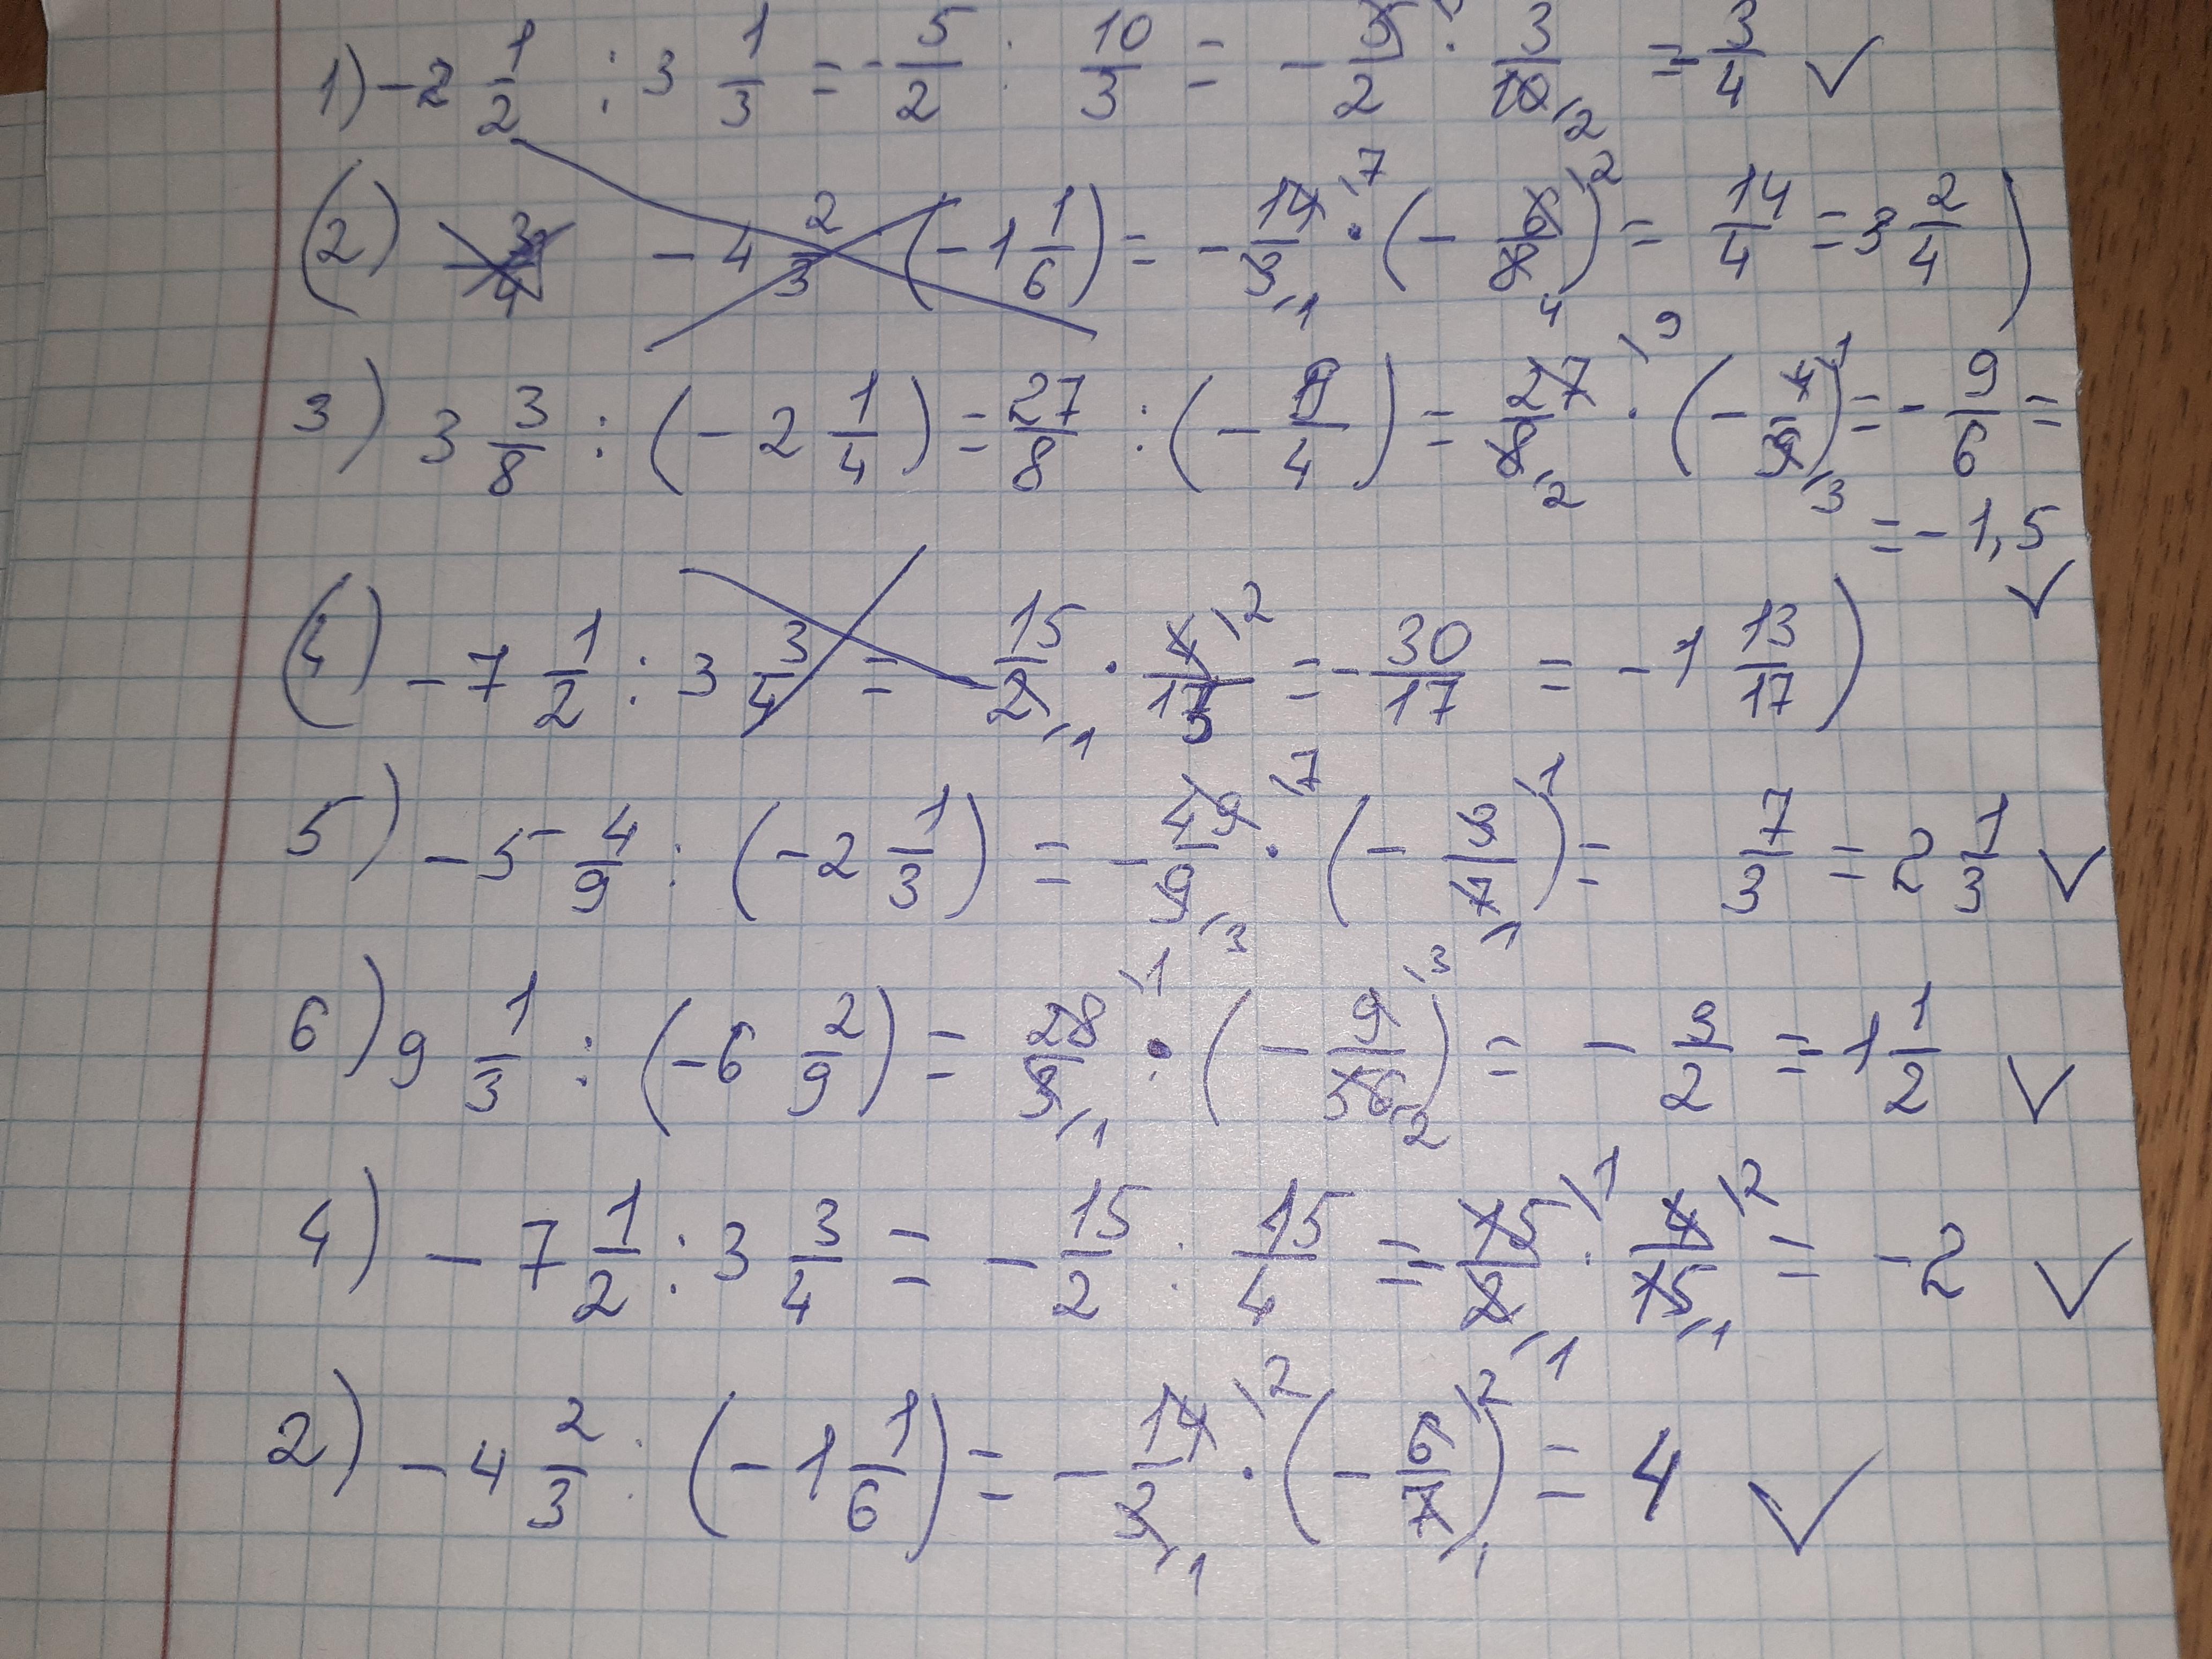 1) -2 1/2 : 3 1/3 = -5/2 : 10/3 = - 5/2 · 3/10 /2 = -3/4 ✓
(2) -4 2/3 (-1 1/6) = - 14/3 \7 /1 · (- 6/8) \2 4 = 14/4 = 3 2/4 )
3) 3 3/8 : (-2 1/4) = 27/8 : (- 9/4) = 27/8 \9 /2 · (- 4/9) \1 /3 = - 9/6 =
= -1,5 ✓
(4) -7 1/2 : 3 3/4 = - 15/2 /1 · 4/17 \2 = - 30/17 = -1 13/17 )
5) -5 4/9 : (-2 1/3) = - 49/9 \7 /3 · (- 3/7) \1 /1 = 7/3 = 2 1/3 ✓
6) 9 1/3 : (-6 2/9) = 28/3 \1 /1 · (- 9/56) \3 /2 = - 3/2 = -1 1/2 ✓
4) -7 1/2 : 3 3/4 = - 15/2 : 15/4 = - 15/2 \1 /1 · 4/15 \2 /1 = -2 ✓
2) -4 2/3 : (-1 1/6) = - 14/3 \2 /1 · (- 6/7) \2 /1 = 4 ✓